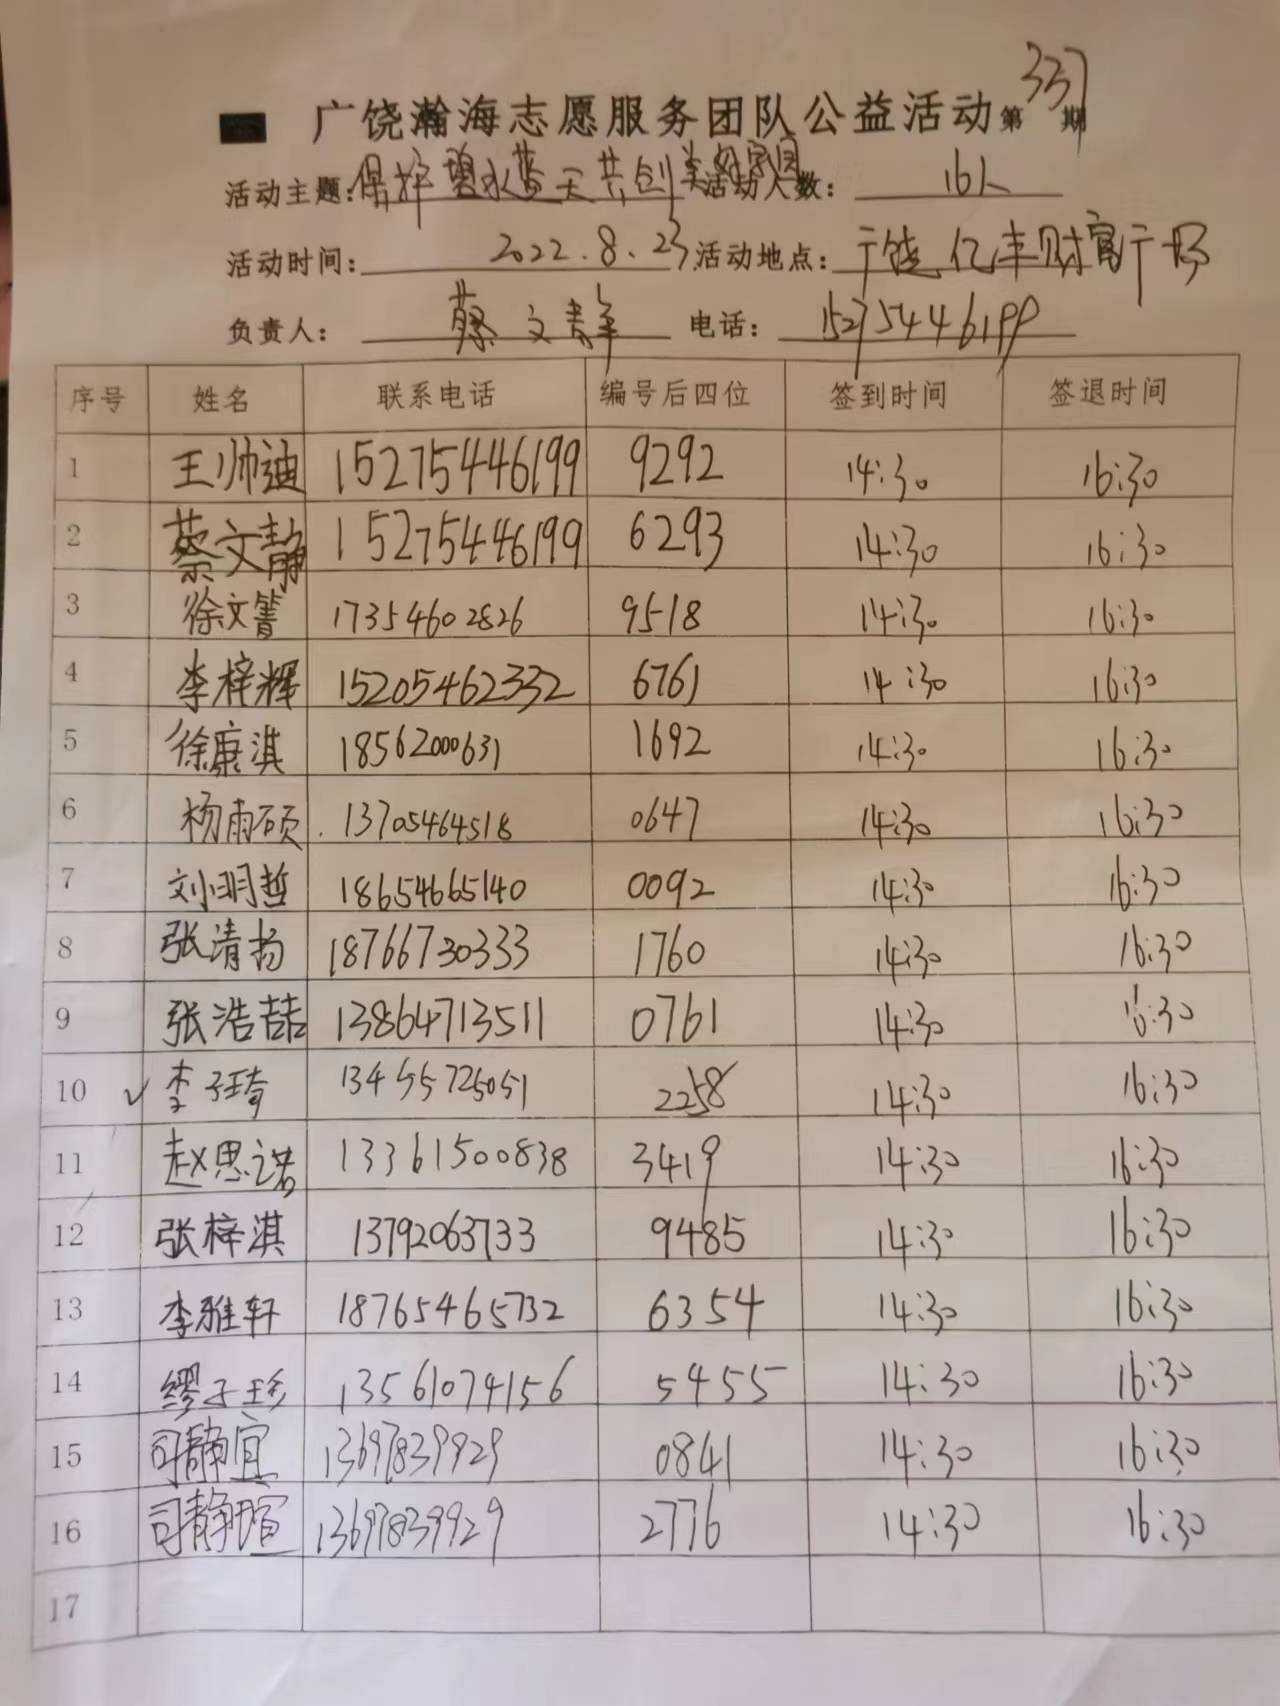 广饶瀚海志愿服务团队公益活动第337期
活动主题:保护碧水蓝天共创美好家园 活动人数: 16人
活动时间: 2022.8.23 活动地点: 广饶亿丰财富广场
负责人: 蔡文静 电话: 15275446199
序号 姓名 联系电话 编号后四位 签到时间 签退时间
1 王帅迪 15275446199 9292 14:30 16:30
2 蔡文静 15275446199 6293 14:30 16:30
3 徐文箐 17354602826 9518 14:30 16:30
4 李梓辉 15205462332 6761 14:30 16:30
5 徐康淇 18562000631 1692 14:30 16:30
6 杨雨硕 13705464518 0647 14:30 16:30
7 刘明哲 18654665140 0092 14:30 16:30
8 张清扬 18766730333 1760 14:30 16:30
9 张浩喆 13864713511 0761 14:30 16:30
10 ✓ 李子琦 13455725051 2258 14:30 16:30
11 赵思诺 13361500838 3419 14:30 16:30
12 张梓淇 13792063733 9485 14:30 16:30
13 李雅轩 18765465732 6354 14:30 16:30
14 缪子珍 13561074156 5455 14:30 16:30
15 司静宜 13697839929 0841 14:30 16:30
16 司静瑄 13697839929 2776 14:30 16:30
17